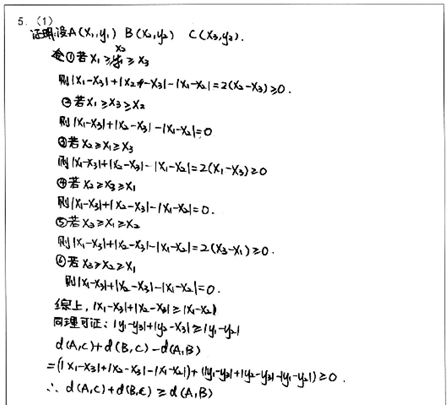 5. (1)
证明:设A(X₁,y₁) B(X₂,y₂) C(X₃,y₃).
①若X₁≥X₂≥X₃
则|X₁-X₃|+|X₂-X₃|-|X₁-X₂|=2(X₂-X₃)≥0.
②若X₁≥X₃≥X₂
则|X₁-X₃|+|X₂-X₃|-|X₁-X₂|=0
③若X₂≥X₁≥X₃
则|X₁-X₃|+|X₂-X₃|-|X₁-X₂|=2(X₁-X₃)≥0
④若X₂≥X₃≥X₁
则|X₁-X₃|+|X₂-X₃|-|X₁-X₂|=0.
⑤若X₃≥X₁≥X₂
则|X₁-X₃|+|X₂-X₃|-|X₁-X₂|=2(X₃-X₁)≥0.
⑥若X₃≥X₂≥X₁
则|X₁-X₃|+|X₂-X₃|-|X₁-X₂|=0.
综上,|X₁-X₃|+|X₂-X₃|≥|X₁-X₂|
同理可证:|y₁-y₃|+|y₂-X₃|≥|y₁-y₂|
d(A,C)+d(B,C)-d(A,B)
=(|X₁-X₃|+|X₂-X₃|-|X₁-X₂|)+(|y₁-y₃|+|y₂-y₃|-|y₁-y₂|)≥0.
∴d(A,C)+d(B,C)≥d(A,B)